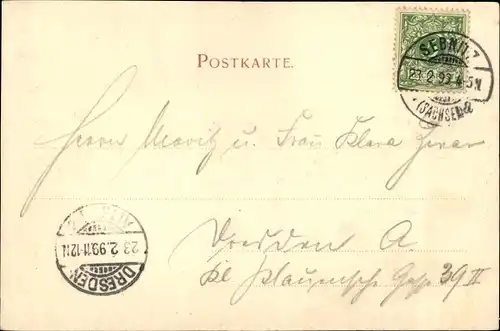 POSTKARTE.
SEBNITZ
23 2 99 4-5N.
(SACHSEN)
Herrn Moritz u. Frau Klara
Dresden A
Kl Plauensche Gasse 39 II
23 2.99.11-12N
DRESDEN